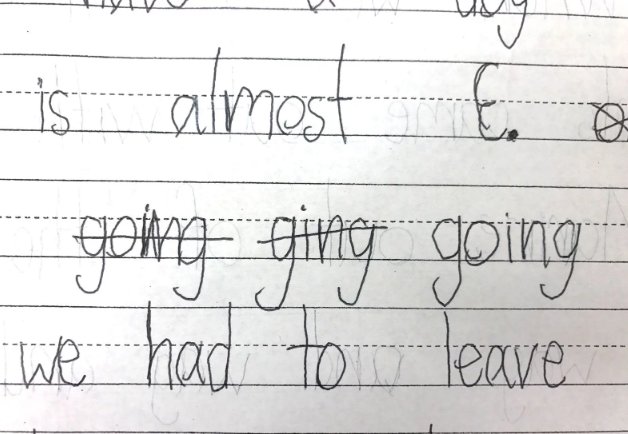 is almost E.
going ging going
we had to leave